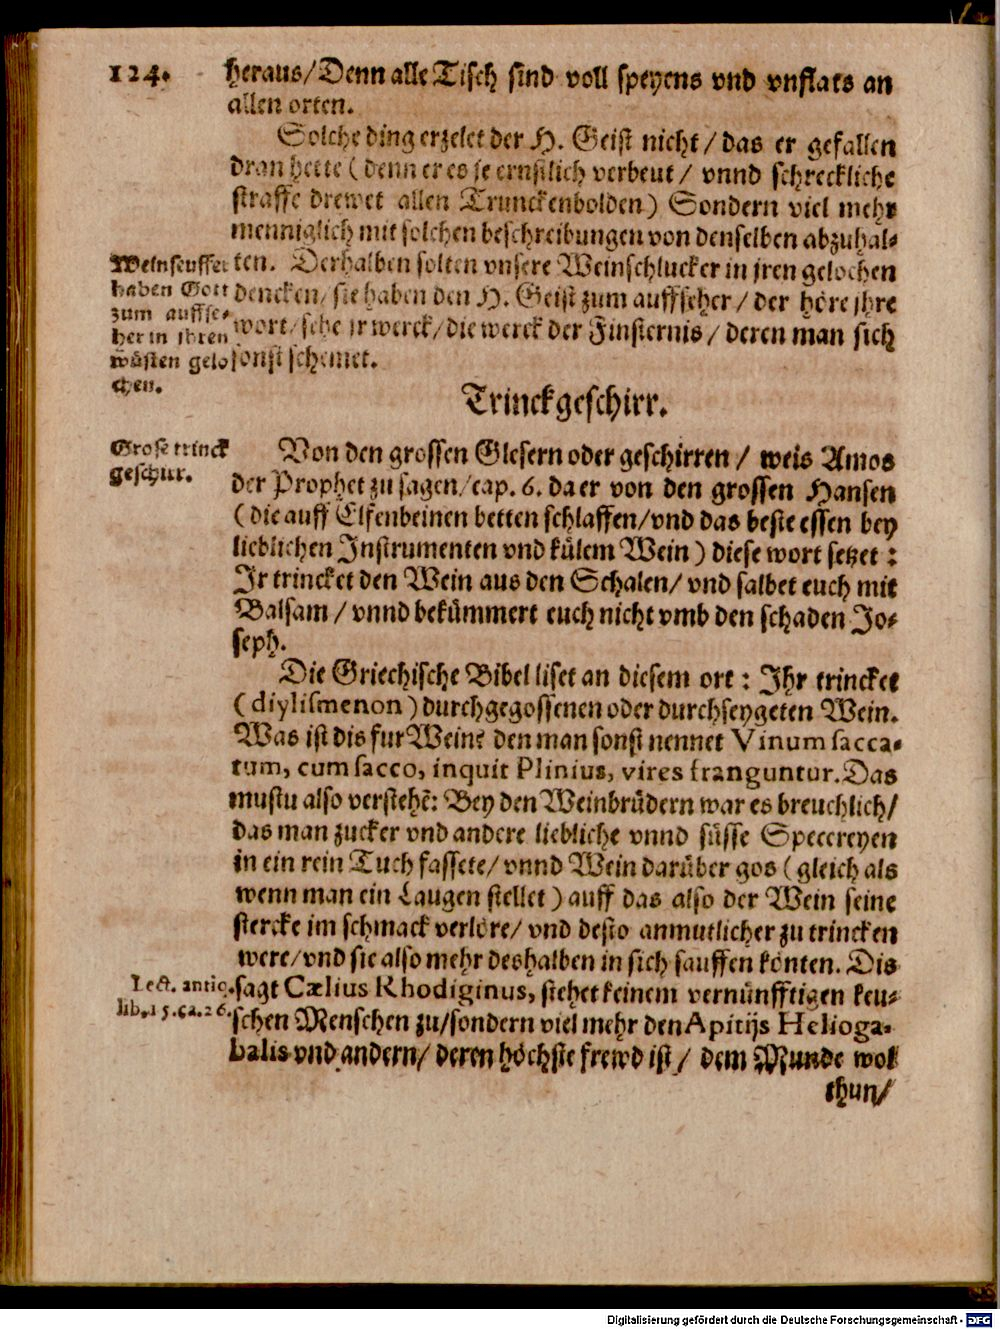 124.
heraus/Denn alle Tisch sind voll speyens vnd vnflats an
allen orten.
Solche ding erzelet der H. Geist nicht / das er gefallen
dran hette ( denn er es je ernstlich verbeut / vnnd schreckliche
straffe drewet allen Trunckenbolden ) Sondern viel mehr
menniglich mit solchen beschreibungen von denselben abzuhal⸗
ten. Derhalben solten vnsere Weinschlucker in jren gelochen
dencken/ sie haben den H. Geist zum auffseher / der höre jhre
wort/ sehe jr werck/ die werck der Finsternis / deren man sich
sonst schemet.
Weinseuffer
haben Gott
zum auffse⸗
her in ihren
wüsten gelo
chen.
Trinckgeschirr.
Grose trinck
geschirr.
Von den grossen Glesern oder geschirren / weis Amos
der Prophet zu sagen/cap. 6. da er von den grossen Hansen
( die auff Elfenbeinen betten schlaffen/vnd das beste essen bey
lieblichen Instrumenten vnd külem Wein ) diese wort setzet :
Ir trincket den Wein aus den Schalen/ vnd salbet euch mit
Balsam / vnnd bekümmert euch nicht vmb den schaden Jo⸗
seph.
Die Griechische Bibel liset an diesem ort : Ihr trincket
( diylismenon ) durchgegossenen oder durchseygeten Wein.
Was ist dis fur Wein? den man sonst nennet Vinum sacca⸗
tum, cum sacco, inquit Plinius, vires franguntur. Das
mustu also verstehē: Bey den Weinbrüdern war es breuchlich/
das man zucker vnd andere liebliche vnnd süsse Specereyen
in ein rein Tuch fassete/ vnnd Wein darüber gos ( gleich als
wenn man ein Laugen stellet ) auff das also der Wein seine
stercke im schmack verlöre/ vnd desto anmutlicher zu trincken
were/vnd sie also mehr deshalben in sich sauffen könten. Dis
sagt Cælius Rhodiginus, stehet keinem vernünfftigen keu⸗
schen Menschen zu/sondern viel mehr den Apitijs Helioga⸗
balis vnd andern/ deren höchste frewd ist / dem Munde wol
Lect. antiq.
lib. 15. ca. 26.
thun/
Digitalisierung gefördert durch die Deutsche Forschungsgemeinschaft - DFG